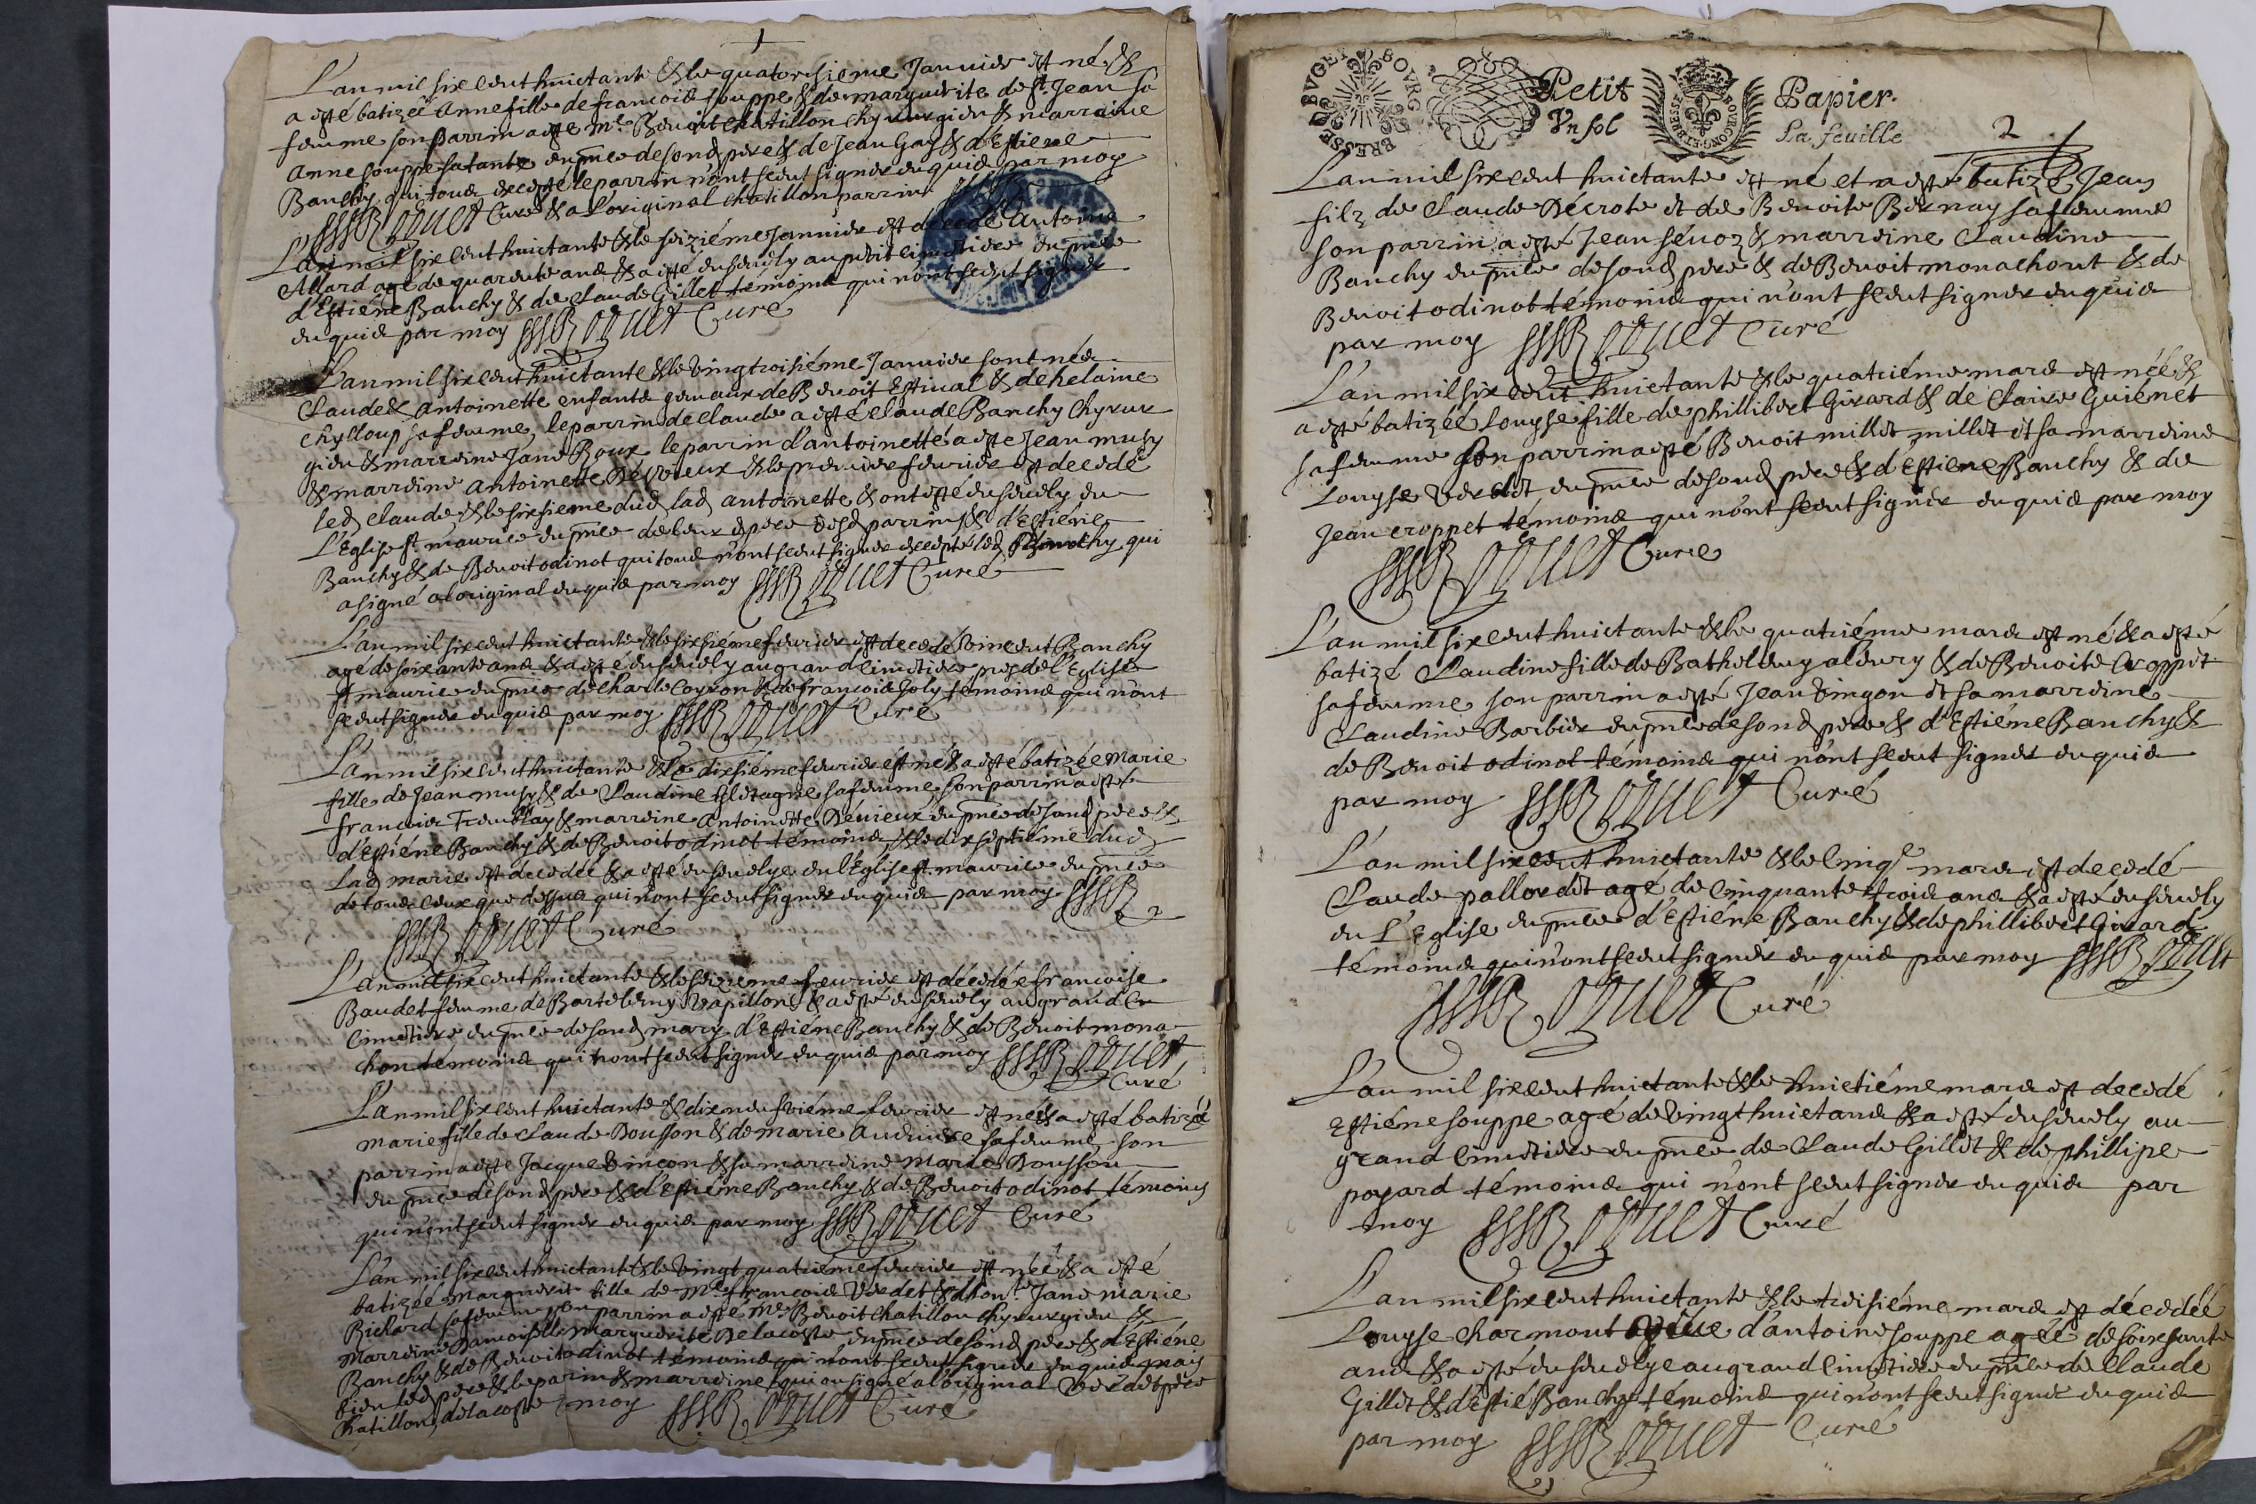 1
L'an mil six cent huictante & le quatorsieme Januier est né &
a esté batizeé Anne fille de francois souppe & de marguerite de st Jean sa
femme son parrin a esté Me Benoit Chatillon Chyrurgien & marraine
Anne souppe sa tante en pnce de sond pere & de Jean Gay & d'Estiene
Banchy qui tous excepté le parrin n'ont sceut signer enquis par moy
Curé & a l'original Chatillon parrin
L'an mil six cent huictante & le seiziéme Januier est decede Antoine
Allard agé de quarente ans & a esté enseuely au petit cimetiere en pnce
d'Estiéne Banchy & de Claude Gillet témoins qui n'ont sceut signer
enquis par moy Curé
L'an mil six cent huictante & le vingtroisiéme Januier sont nés
Claude & Antoinette enfants gemaux de Benoit Estiual & de helaine
Chylloup sa femme, le parrin de Claude a esté Claude Banchy Chyrur
gien & marreine Jane Roux le parrin d'antoinette a esté Jean musy
& marreine Antoinette & le premier feurier est decedé
led Claude & le sixsieme dud lad antoinette & ont esté enseuely en
L'Eglise st maurice en pnce de leur d pere desd parrins & d'Estiéne
Banchy & de Benoit odinot qui tous n'ont sceut signer excepté led Banchy qui
a signé a l'original enquis par moy Curé
L'an mil six cent huictante & le sixsiéme feurier est decedé Vincent Banchy
agé de soixante ans & a esté enseuely au grand cimetiere pres de l'Eglise
st maurice en pnce de Charle Coyron & de francois Joly témoins qui n'ont
sceut signer enquis par moy Curé
L'an mil six cent huictante & le dixsiéme feurier est né & a esté batizée Marie
fille de Jean musy & de Claudine sa femme son parrin a esté
francois & marreine Antoinette Déuieux en pnce de sond pere &
d'Estiéne Banchy & de Benoit odinot témoins, & le dix septiéme dud
Lad marie est decedée & a esté enseuelye en l'Eglise st maurice en pnce
de tous ceux que dessus qui n'ont sceut signer enquis par moy
Curé
L'an mil six cent huictante & le seizieme feurier est décédée francoise
Baudet femme de Bartelemy Papillon & a esté enseuely au grand Ci
cimetiere en pnce de sond mary d'Estiéne Banchy & de Benoit mona
chon témoins qui n'ont sceut signer enquis par moy
Curé
L'an mil six cent huictante & dixneufviéme feurier est née & a esté batizée
marie fille de Claude Dousson & de marie sa femme son
parrin a esté Jacque Vincon & sa marreine Marie Dousson
en pnce de sond pere & d'Estiéne Banchy & de Benoit odinot témoins
qui n'ont sceut signer enquis par moy Curé
L'an mil six cent huictante & le vingt quatriéme feurier est née & a esté
batizée marguerite fille de Me francois Verdet & d'hon te Jane marie
Richard sa femme son parrin a esté Me Benoit Chatillon Chyrurgien &
marreine Damoiselle marguerite Delacoste en pnce de sond pere & d'Estiéne
Banchy & de Benoit odinot témoins qui n'ont sceut signer enquis mais
bien led pere & le parrin & marreine qui on signé a l'original Verdet pere
Chatillon, delacoste moy Curé
BRESSE BVGEY BOVRG
Petit Papier.
Vn sol La feuille
2
L'an mil six cent huictante est né et a esté batizé Jean
filz de Claude Décrote et de Benoite Bernay sa femme
son parrin a esté Jean séuoz & marreine Claudine
Banchy en pnce de sond pere & de Benoit monachont & de
Benoit odinot témoins qui n'ont sceut signer enquis
par moy Curé
L'an mil six cent huictante & le quatriéme mars est née &
a esté batizéé Louyse fille de phillibert Girard & de Claire Guiénet
sa femme son parrin a esté Benoit millet millet et sa marreine
Louyse Verdet en pnce de sond pere & d'Estiene Banchy & de
Jean croppet témoins qui n'ont sceut signer enquis par moy
Curé
L'an mil six cent huictante & le quatriéme mars est né & a esté
batizé Claudine fille de Bathelemy & de Benoite Croppet
sa femme son parrin a esté Jean Vingon et sa marreine
Claudine Barbier en pnce de sond pere & d'Estiéne Banchy &
de Benoit odinot témoins qui n'ont sceut signer enquis
par moy Curé
L'an mil six cent huictante & le cinqe mars est decedé
Claude palloudet agé de Cinquante trois ans & a esté enseuely
en L'Eglise en pnce d'Estiéne Banchy & de phillibert Girard
témoins qui n'ont sceut signer enquis par moy
Curé
L'an mil six cent huictante & le huictiéme mars est decedé
Estiéne souppe agé de vingt huict ans & a esté enseuely au
grand Cimetiere en pnce de Claude Gillet & de phillipe
poyard témoins qui n'ont sceut signer enquis par
moy Curé
L'an mil six cent huictante & le troisiéme mars est décedée
Louyse Charmont d'antoine souppe agéé de soixsante
ans & a esté enseuelye au grand Cimetiere en pnce de Claude
Gillet & d'Estié Banchy témoins qui n'ont sceut signer enquis
par moy Curé